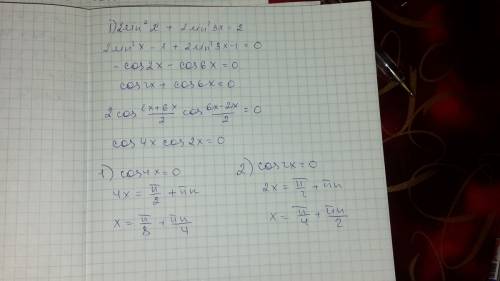 1) 2sin² x + 2sin² 3x = 2
2sin² x - 1 + 2sin² 3x - 1 = 0
- cos2x - cos6x = 0
cos2x + cos6x = 0
2 cos (2x+6x)/2 cos (6x-2x)/2 = 0
cos4x cos2x = 0
1) cos4x = 0
4x = π/2 + πn
x = π/8 + πn/4
2) cos2x = 0
2x = π/2 + πn
x = π/4 + πn/2